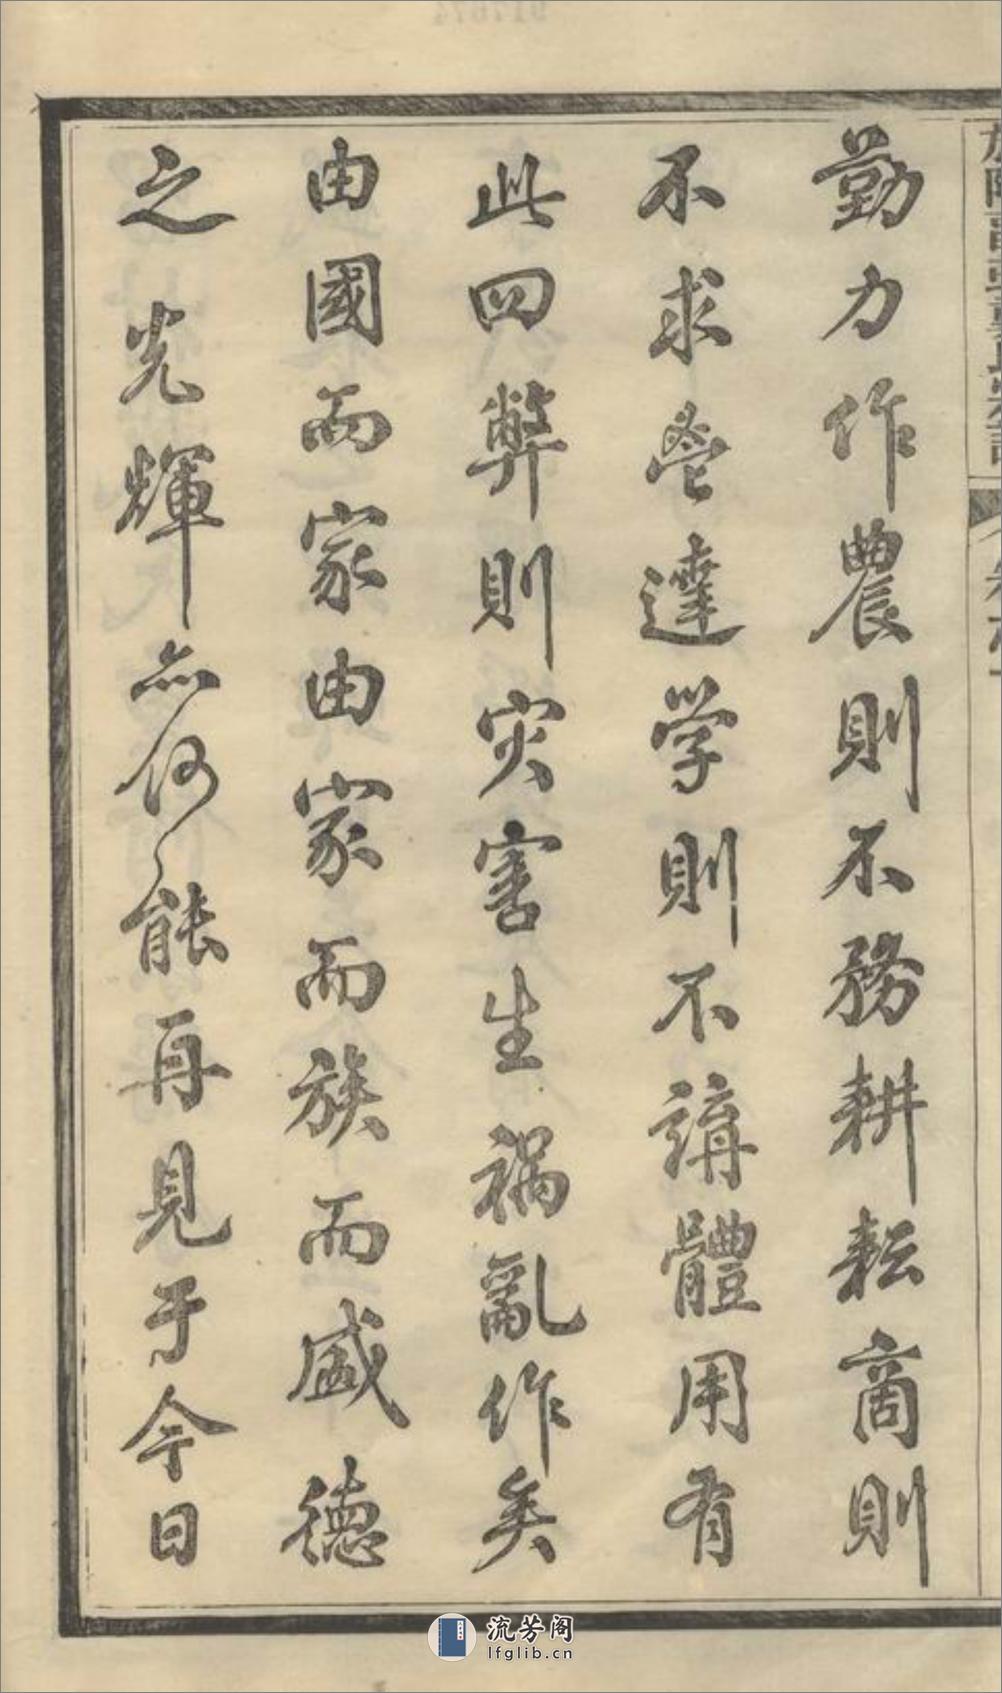 勤力作農則不務耕耘商則
不求營達学則不講體用有
此四弊則灾害生禍亂作矣
由國而家由家而族而盛德
之光輝亦何能再見于今日
流芳阁
lfglib.cn